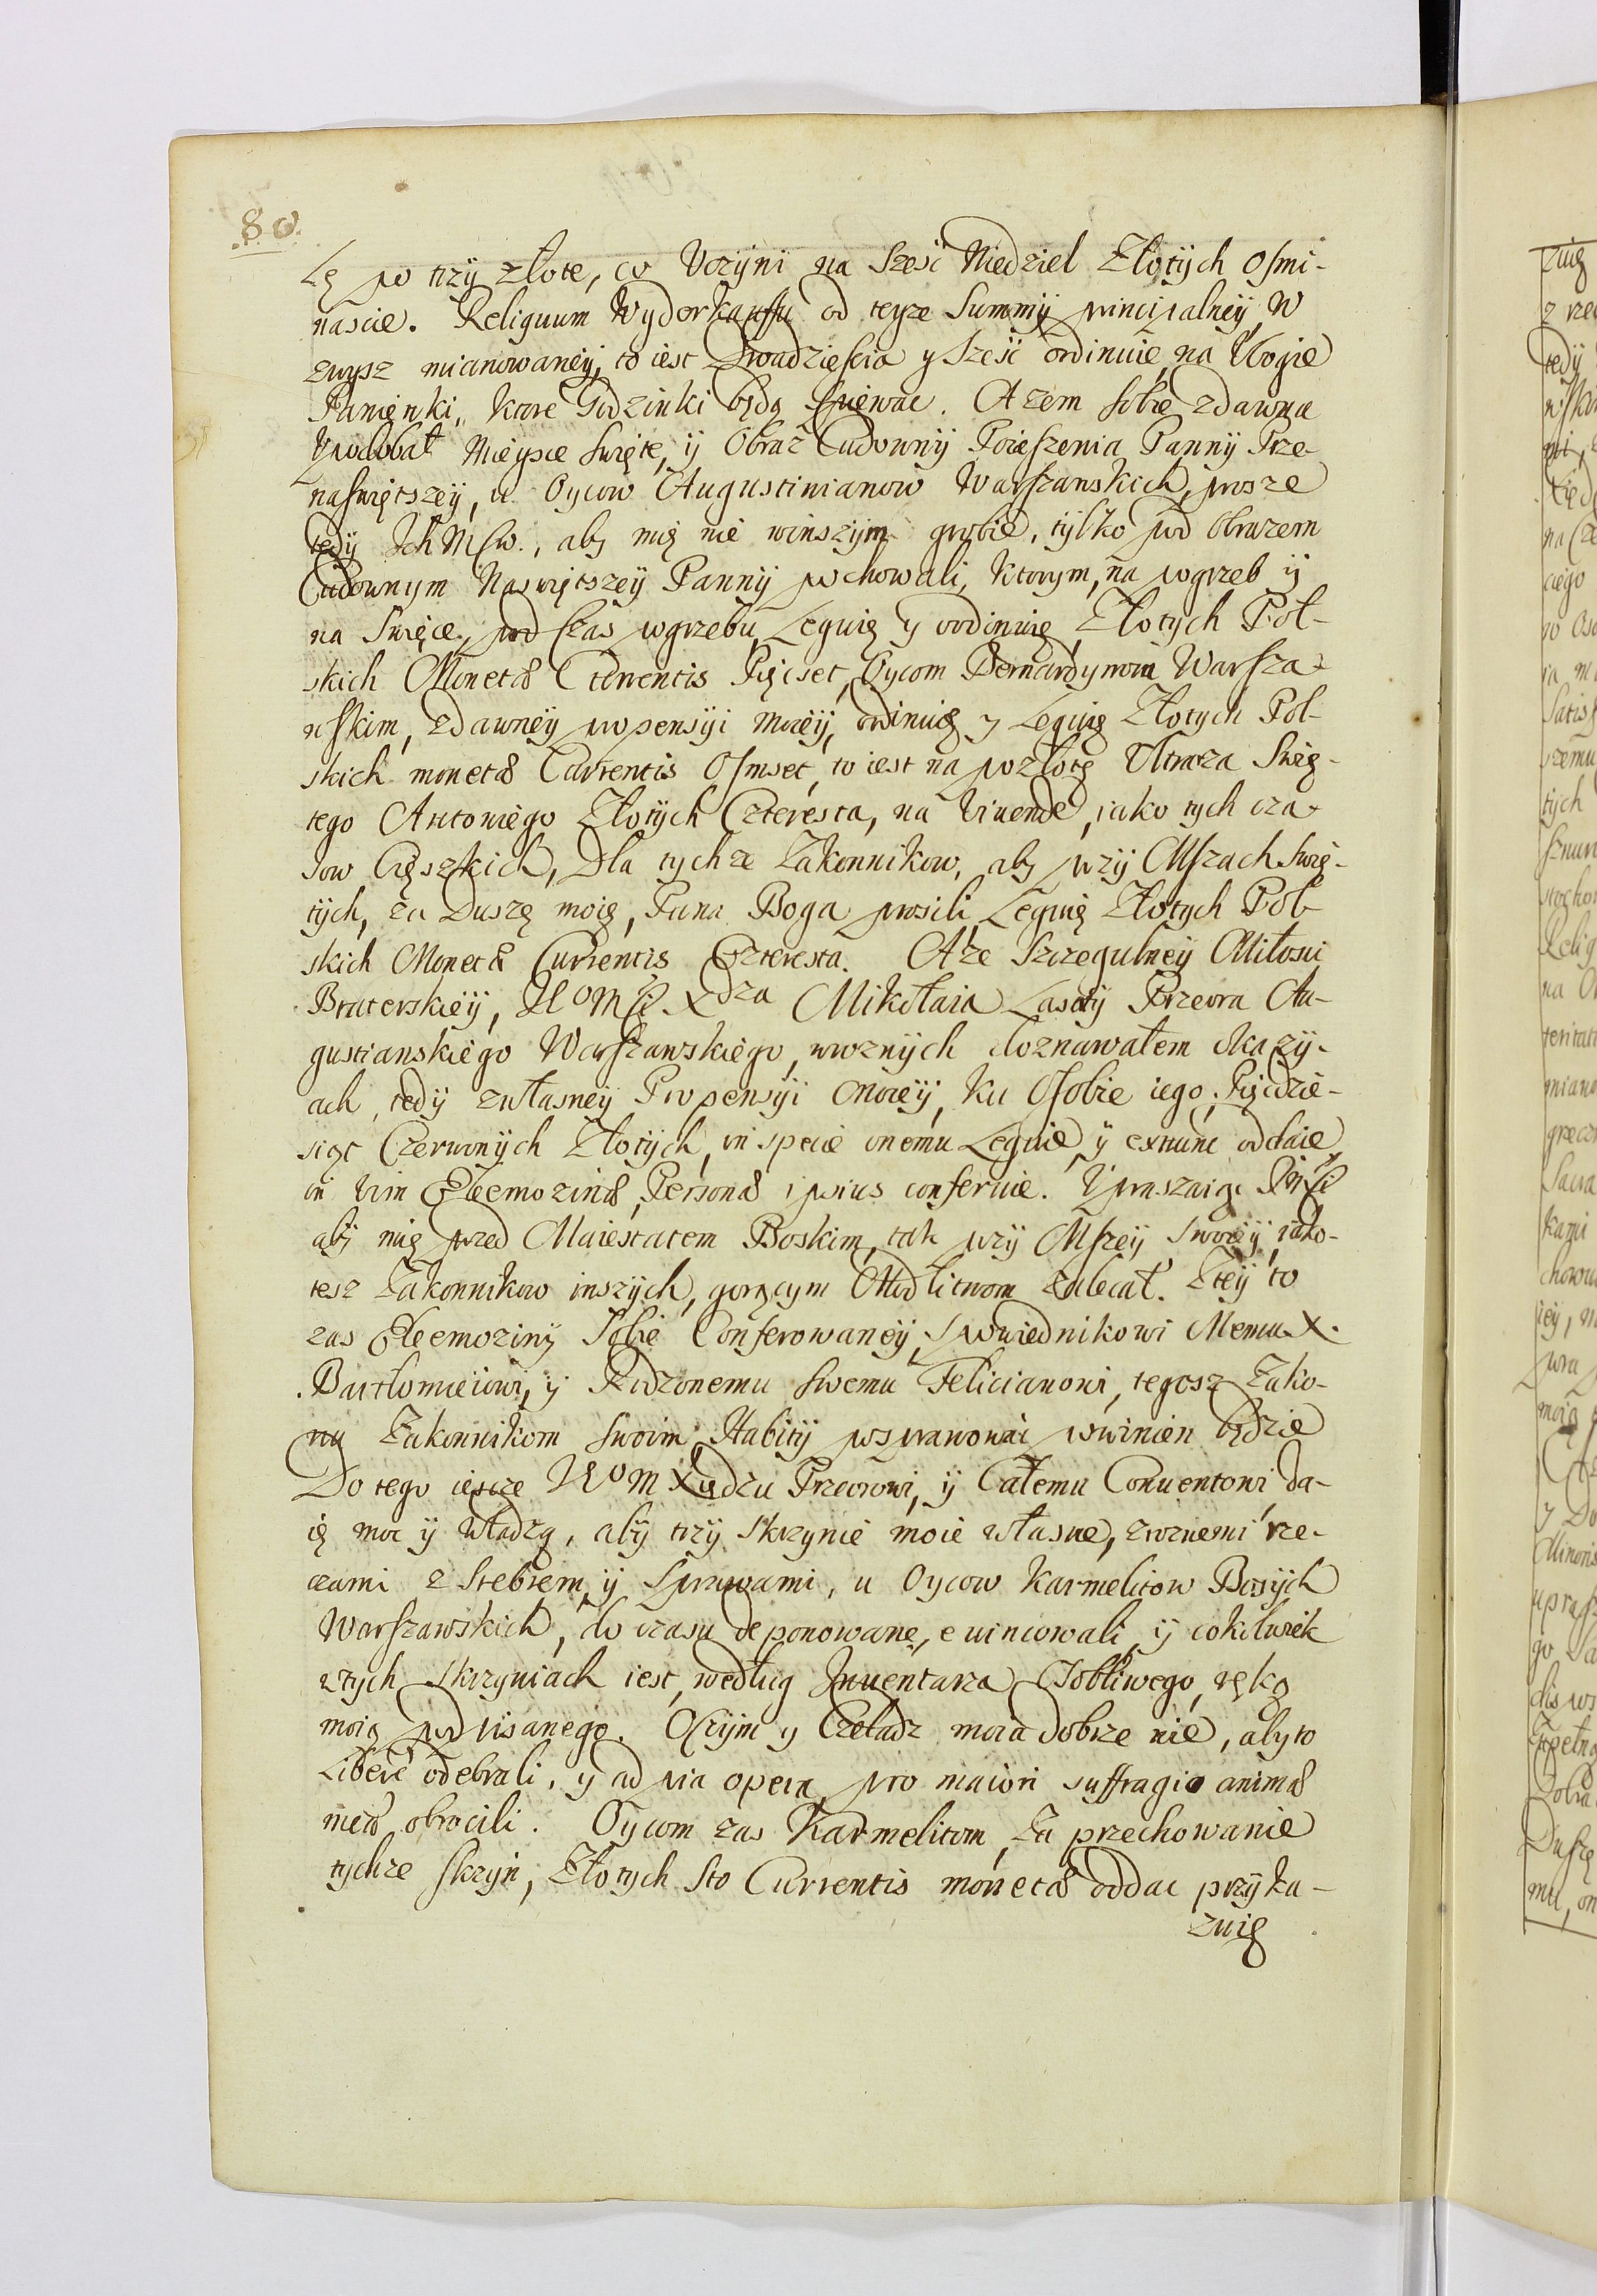 80.
Lę po trzÿ złote, co Uczÿni na Sześć Niedziel Złotÿch Osmi-
nascie. Reliquum Wyderkauffu od teyze Summÿ principalneÿ W
zwysz mianowaneÿ, to iest Dwadziescia y Sześć ordinuie, na Ubogie
Panienki, ktore Godzinki będą Spiewac. A zem sobie zdawna
Upodobał Mieysce Swięte, ÿ Obraz Cudownÿ Pocieszenia Pannÿ Prze-
naswiętszeÿ, u Oycow Augustinianow Warszawskich, prosze
tedÿ Ich Msciw., aby mię nie winszym grobie, tÿlko pod Obrazem
Cudownym Naswiętszeÿ Pannÿ pochowali, Ktorym, na pogrzeb ÿ
na Swięce, pod czas pogrzebu Leguię y ordinuię Złotych Pol-
skich Monetæ Currentis Pięcset, Oycom Bernardynom Warsza-
wskim, zdawneÿ propensÿi moieÿ, ordinuię y Leguię Złotych Pol-
skich monetæ Currentis Osmset, to iest na pozłotę Ołtarza Swię-
tego Antoniego Złotÿch Czterÿsta, na Viuende, iako tych cza-
sow Cięszkich, Dla tychze Zakonnikow, aby przÿ Mszach Swię-
tÿch, za Duszę moię, Pana Boga prosili, Leguię Złotych Pol-
skich Monetæ Currentis Czterysta. A ze Szczegulneÿ Miłosci
Braterskieÿ, JeoMści Xdza Mikołaia Lasoty Przeora Au-
gustianskiego Warszawskiego, wroznÿch doznawałem okazÿ-
ach, tedÿ zwłasneÿ Propensÿi moieÿ, ku Osobie iego, Pięcdzie-
siąt Czerwonÿch Złotÿch, in specie onemu Leguie, ÿ exnunc oddaie
in Vim Eleemozinæ, Personæ ipsius conferuie. Upraszaiąc
abÿ mię przed Maiestatem Boskim, tak przÿ Mszeÿ Swoieÿ, iako-
tesz Zakonnikow inszÿch, gorącym Modlitwom zalecał. Zteÿ to
zas Eleemozinÿ Sobie Conferowaneÿ, Spowiednikowi Memu X.
Bartłomieiowi, ÿ Rodzonemu swemu Felicianowi, tegosz Zako-
nu Zakonnikom swoim Habitÿ posprawowac powinien będzie
Do tego iescze JeoM Xiędzu Przeorowi, ÿ Całemu Conuentowi, da-
ię moc ÿ władzą, abÿ trzÿ Skrzynie moie własne, zroznemi rze-
czami z Srebrem, ÿ Sprawami, u Oycow Karmelitow Bosÿch
Warszawskich, do czasu deponowane, euincowali, ÿ cokolwiek
wtych skrzyniach iest, według Inuentarza Osobliwego, ręką
moią podpisanego. Oczÿm y Czeladz moia dobrze wie, aby to
Libere odebrali, y ad pia opera, pro maiori suffragio animæ
meæ obrocili. Oÿcom zas Karmelitom, Za przechowanie
tychze skrzyn, Złotych Sto Currentis monetæ oddac przÿka-
zuię